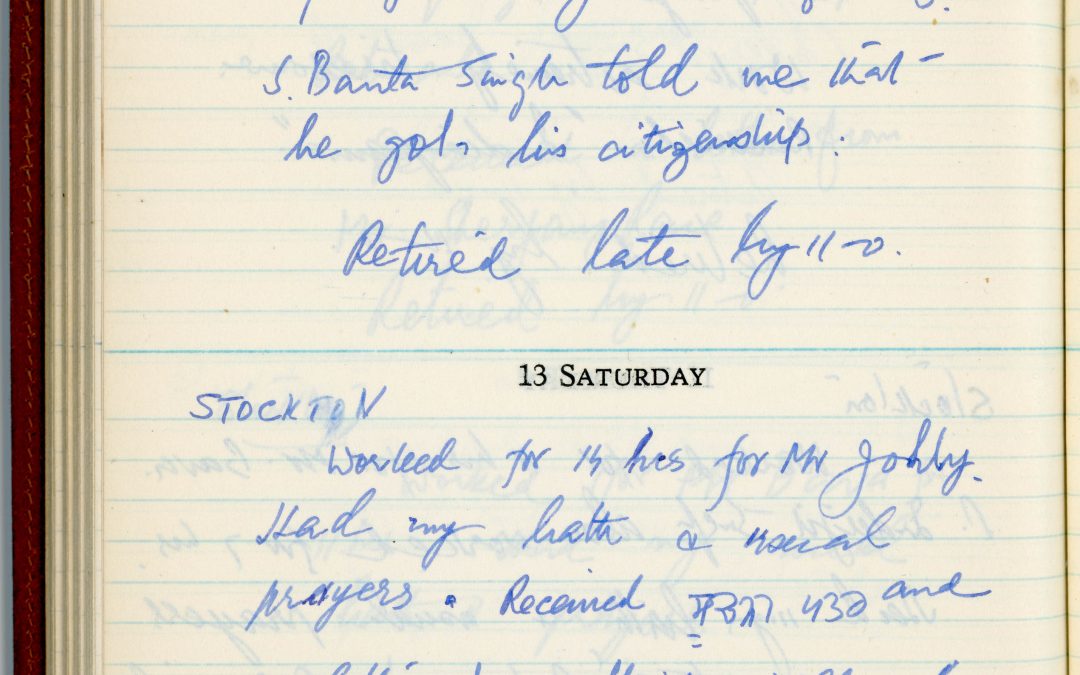 S. Banta Singh told me that
he got his citizenship.
Retired late by 11-0.
13 SATURDAY
STOCKTON
Worked for hrs for Mr
Had my bath & usual
prayers. Received and